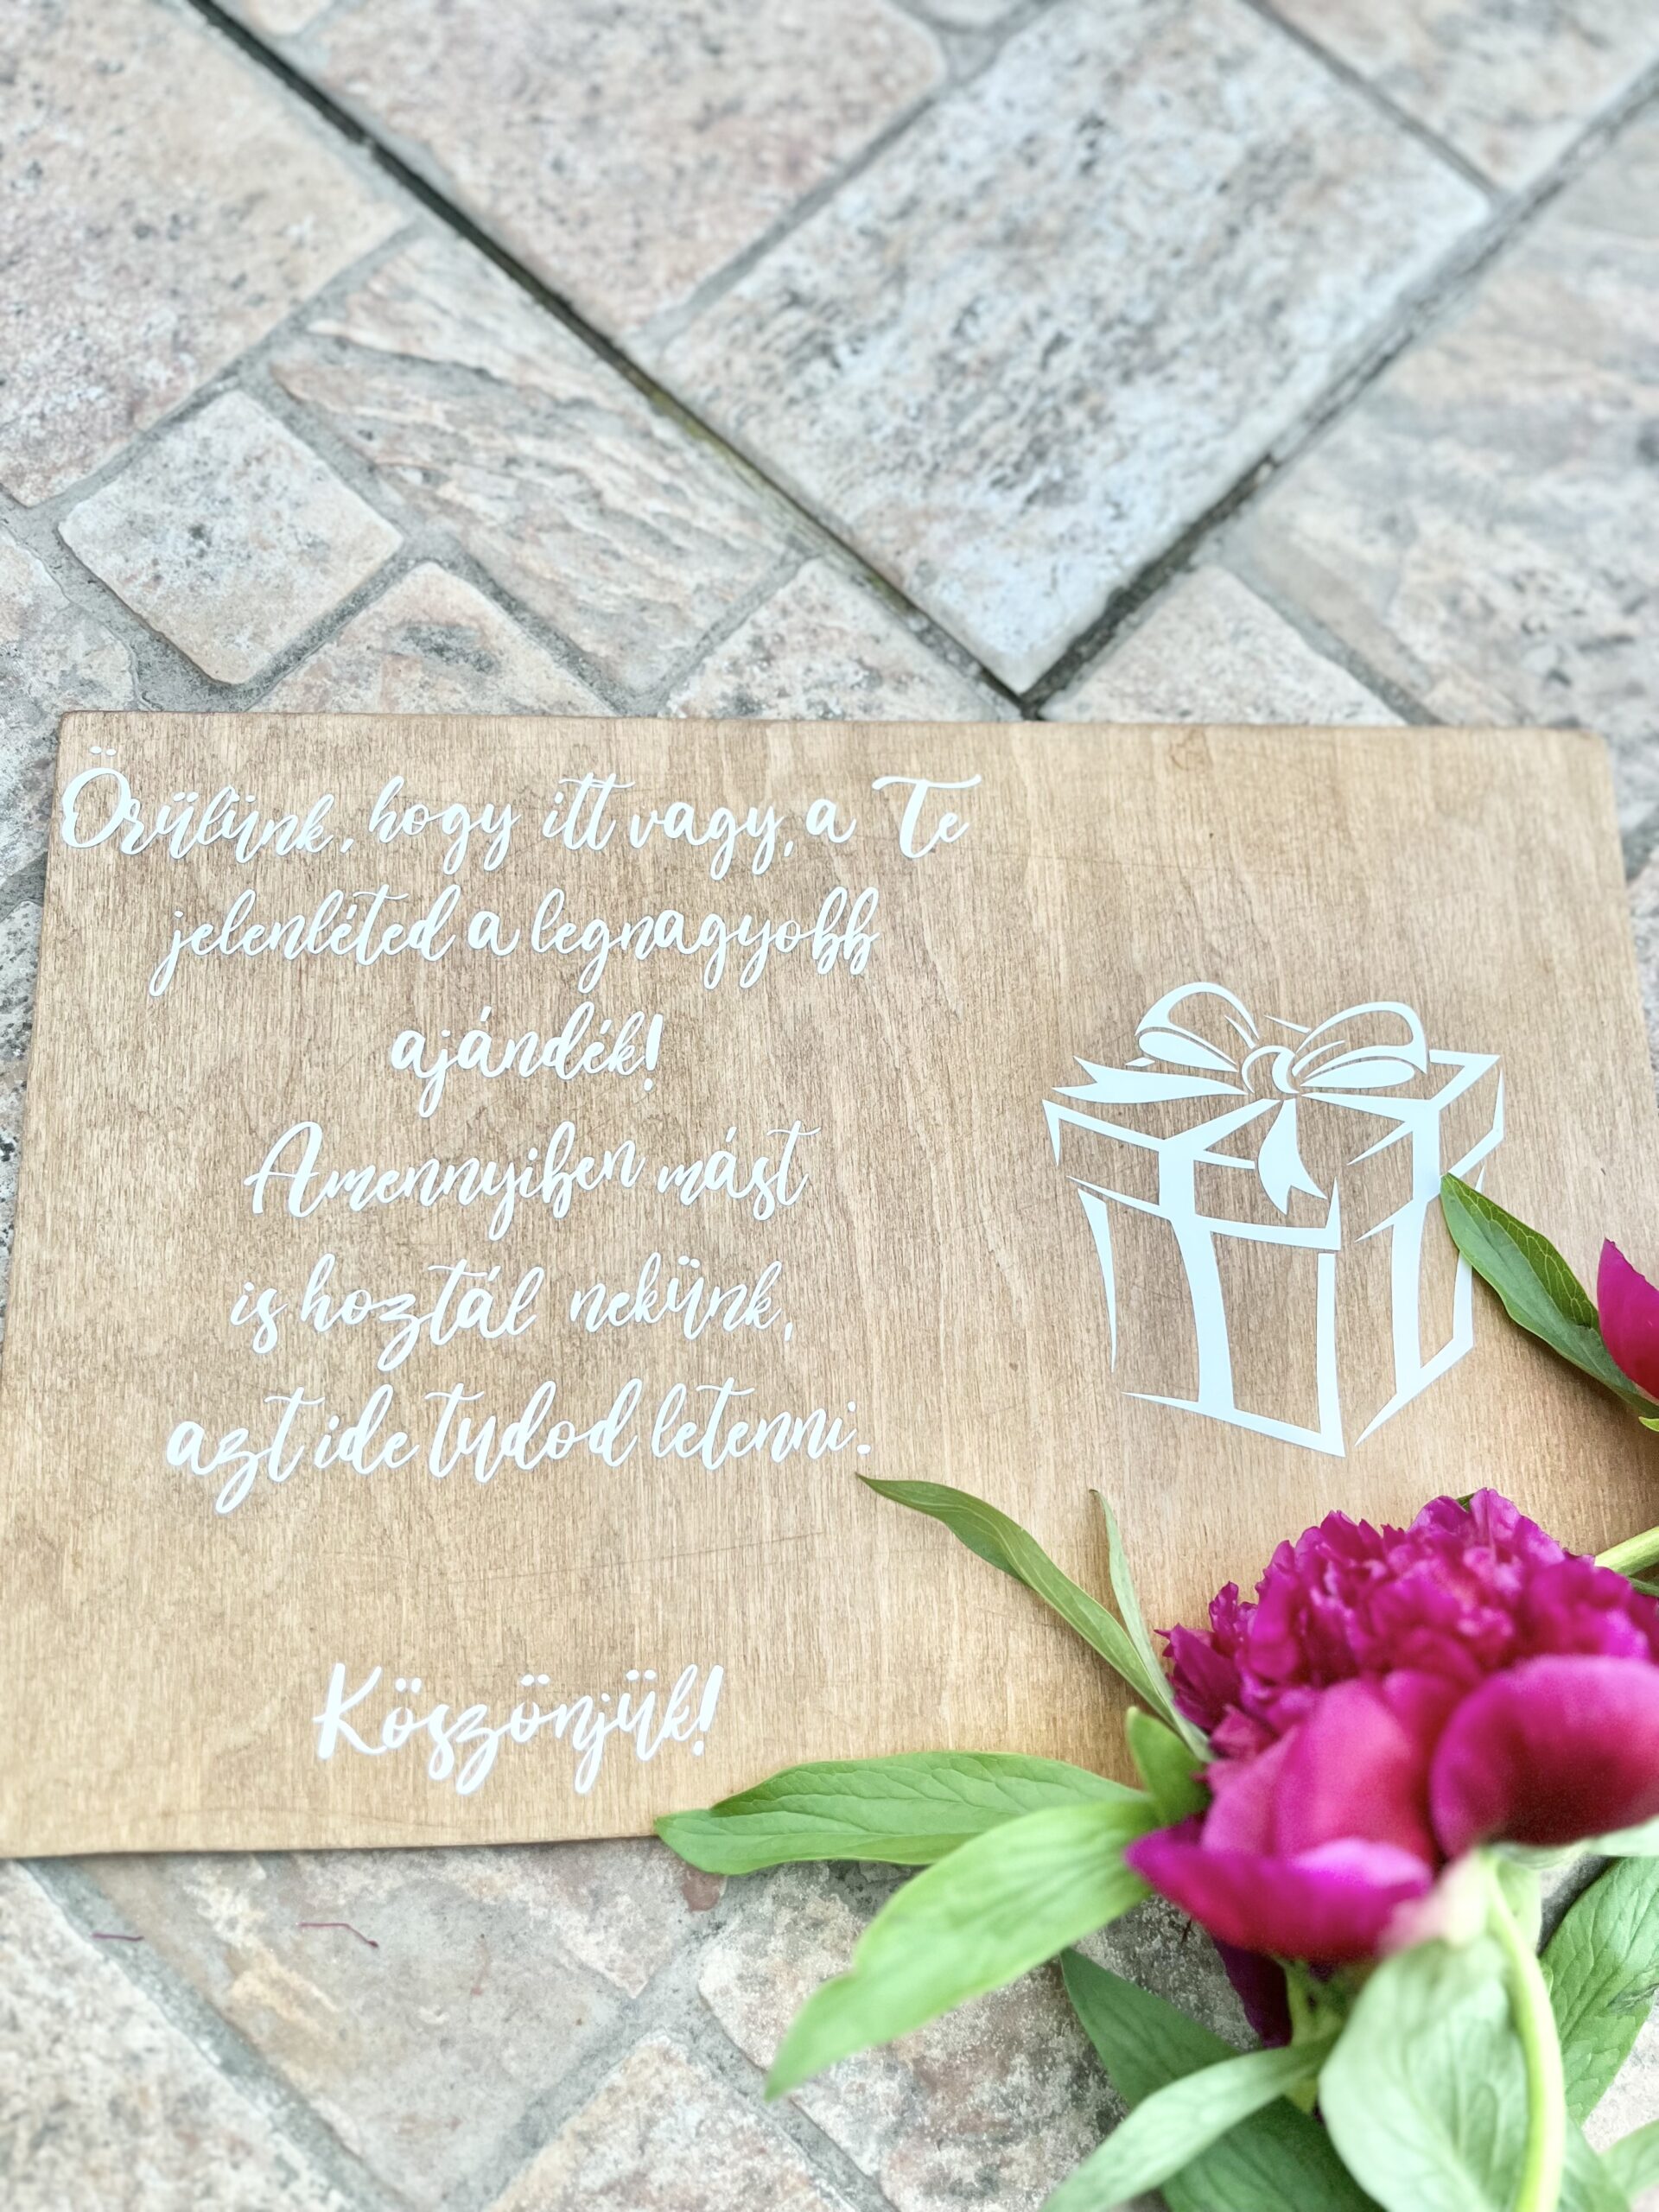 Örülünk, hogy itt vagy, a Te
jelenléted a legnagyobb
ajándék!
Amennyiben mást
is hoztál nekünk,
azt ide tudod letenni.
Köszönjük!